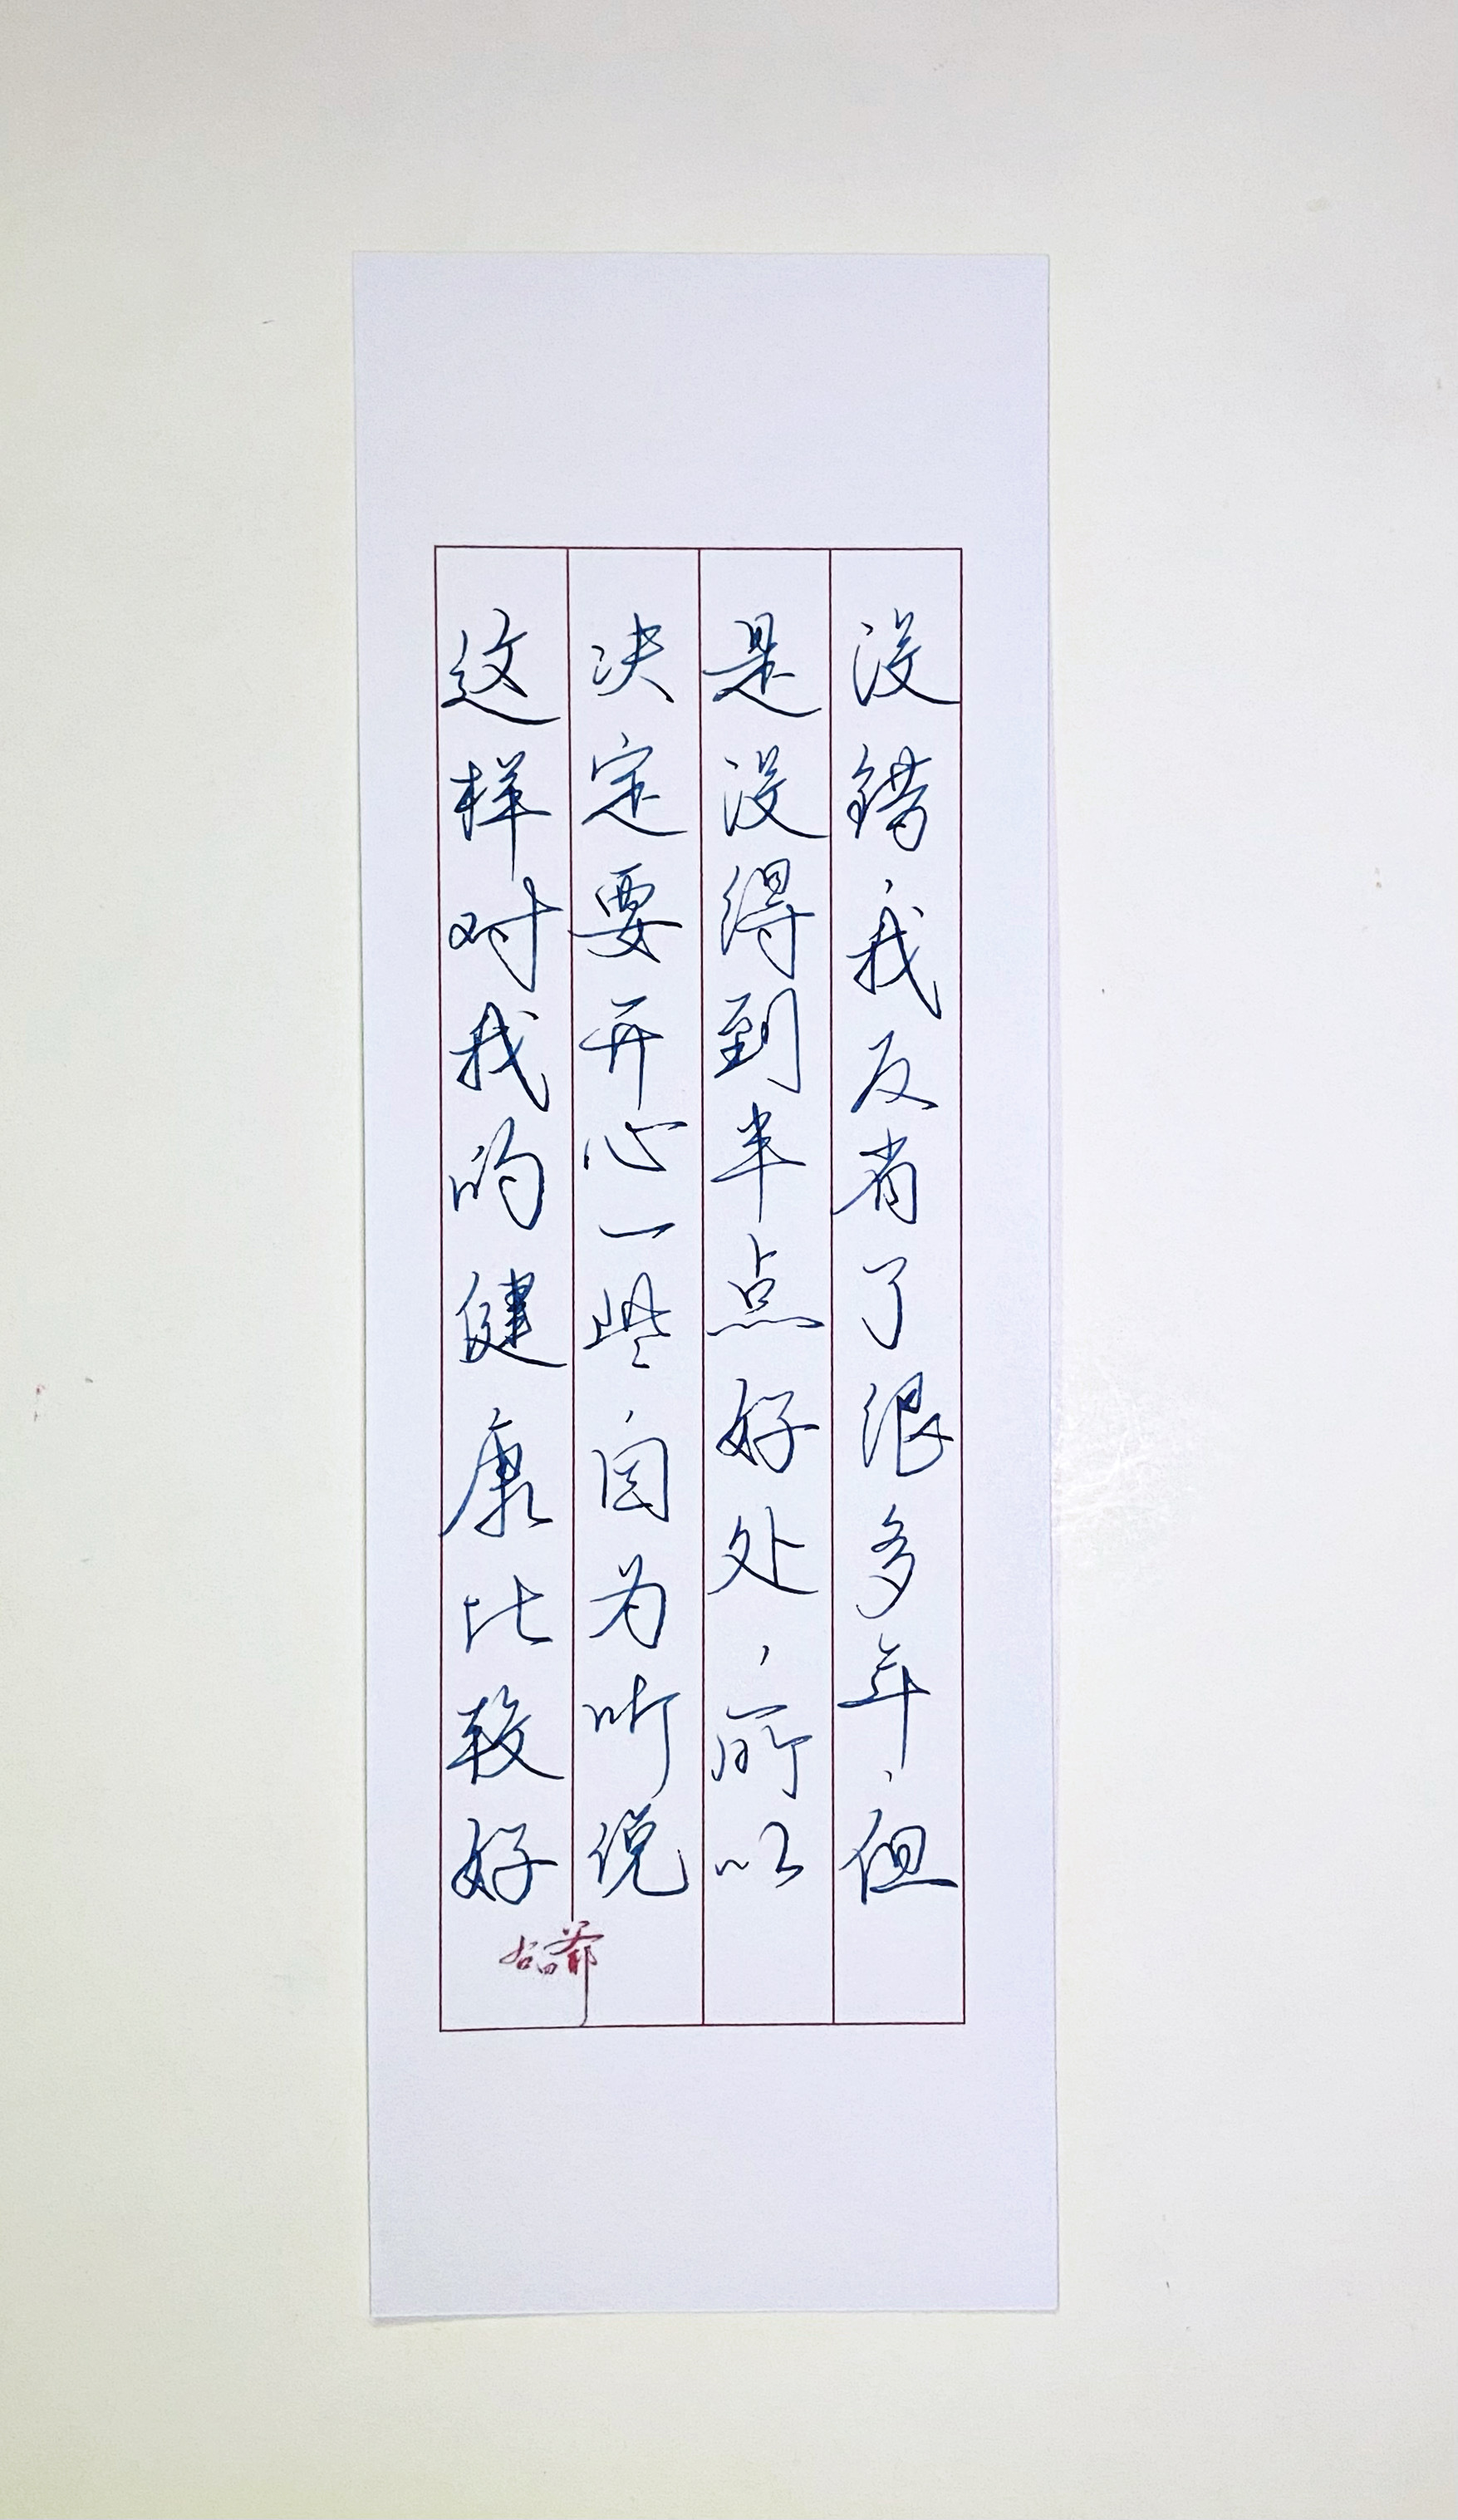 没错，我反省了很多年，但
是没得到半点好处，所以
决定要开心一些，因为听说
这样对我的健康比较好